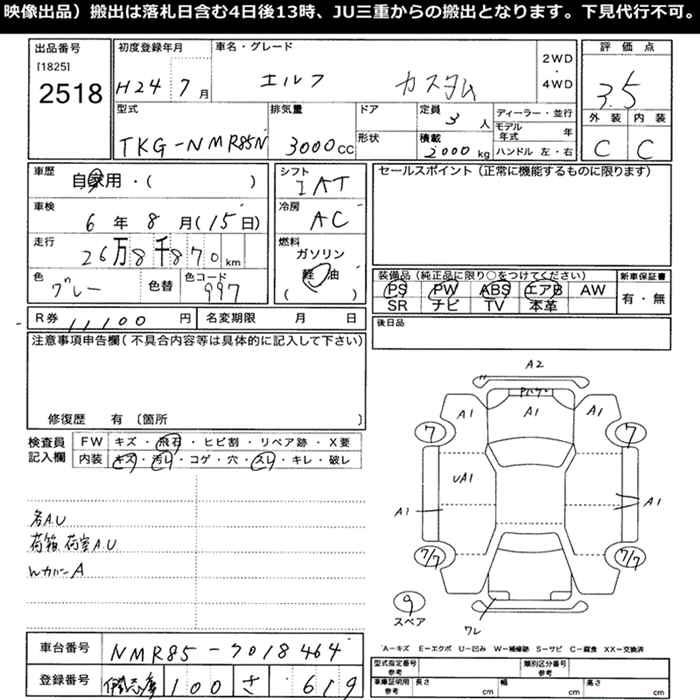 映像出品）搬出は落札日含む4日後13時、JU三重からの搬出となります。下見代行不可。
出品番号 初度登録年月 車名・グレード 2WD・4WD 評価点
[1825]
2518 H24 7月 エルフ カスタム 3.5
型式 排気量 ドア 定員 3人 ディーラー・並行 外装 内装
TKG-NMR85N 3000cc 形状 積載 2000kg モデル年式 年 C C
ハンドル 左・右
車歴 自家用・( ) シフト IAT セールスポイント（正常に機能するものに限ります）
車検 6年8月(15日) 冷房 AC
走行 26万8千870km 燃料 ガソリン
軽油
( )
色 グレー 色替 色コード 997
装備品（純正品に限り○をつけてください） 新車保証書
PS PW ABS エアB AW 有・無
SR ナビ TV 本革
R券 11100円 名変期限 月 日 後日品
注意事項申告欄（不具合内容等は具体的に記入して下さい）
修復歴 有〔箇所 〕
検査員記入欄 FW キズ・飛石・ヒビ割・リペア跡・X要
内装 キズ・汚レ・コゲ・穴・スレ・キレ・破レ
名A.U
荷箱 荷室A.U
WカバーA
A2
A1 A1 A1
7 7
UA1
A1 A1
7/7 7/7
9
スペア
ワレ
A=キズ E=エクボ U=凹み W=補修跡 S=サビ C=腐食 XX=交換済
車台番号 NMR85-7018464
登録番号 100 さ 619
型式指定番号 類別区分番号
参考
車庫証明用 参考 長さ cm 幅 cm 高さ cm